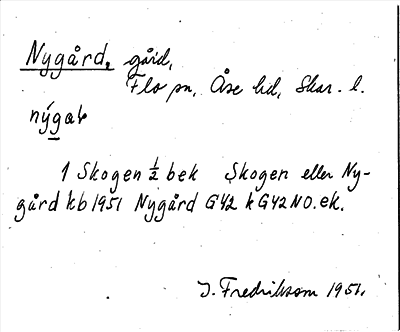 Nygård, gård,
Flo sn, Åse hd, Skar. l.
nýgaɫ
1 Skogen ½ bek Skogen eller Ny-
gård kb 1951 Nygård G42 k G42NO.ek.
I. Fredriksson 1951.